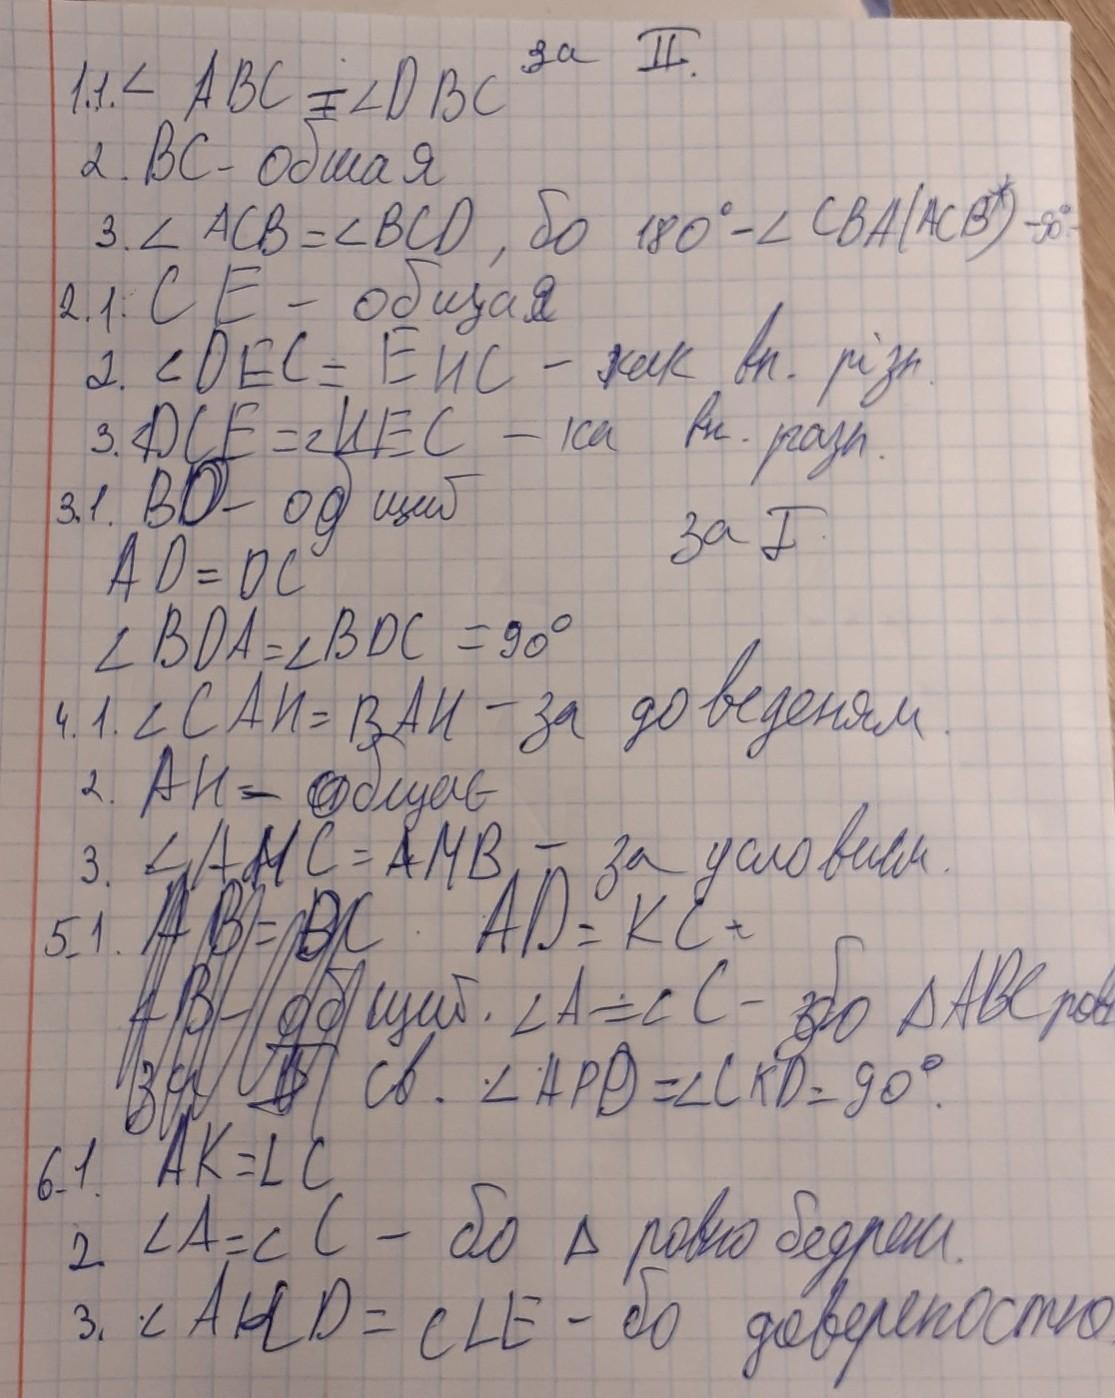 за II.
1.1. < ABC = <DBC
2. BC - обшая
3. < ACB = <BCD, бо 180° - < CBA(ACB*) - 90° -
2.1. CE - общая
2. <DEC = EHC - как вн. різн.
3. <DCE = <HEC - ка вн. разн.
3.1. BD - одщий
за I.
AD = DC
< BDA = < BDC = 90°
4.1. < CAH = BAH - за доведеням.
2. AH - общає
3. < AHC = AHB - за условием.
5.1. AB = BC AD = KC
AB - общий. <A = <C - бо △ABC ров
За II св. < APD = <CKD = 90°.
6.1. AK = LC
2. <A = <C - бо △ ровнобедрен.
3. < AKD = CLE - бо